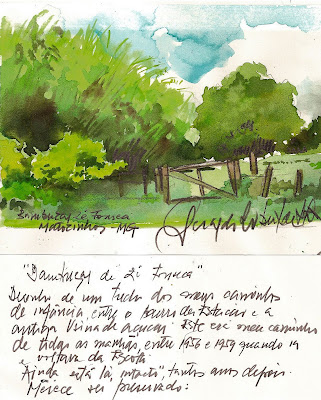 Bambuzal Zé Fonseca
Matozinhos - MG
"Bambuzal de Zé Fonseca"
Desenho de um trecho dos meus caminhos
de infância, entre o bairro da Estação e a
antiga Usina de açúcar. Este era meu caminho
de todas as manhãs, entre 1956 e 1959 quando ia
e voltava da Escola
Ainda está lá, intacto, tantos anos depois.
Merece ser preservado.